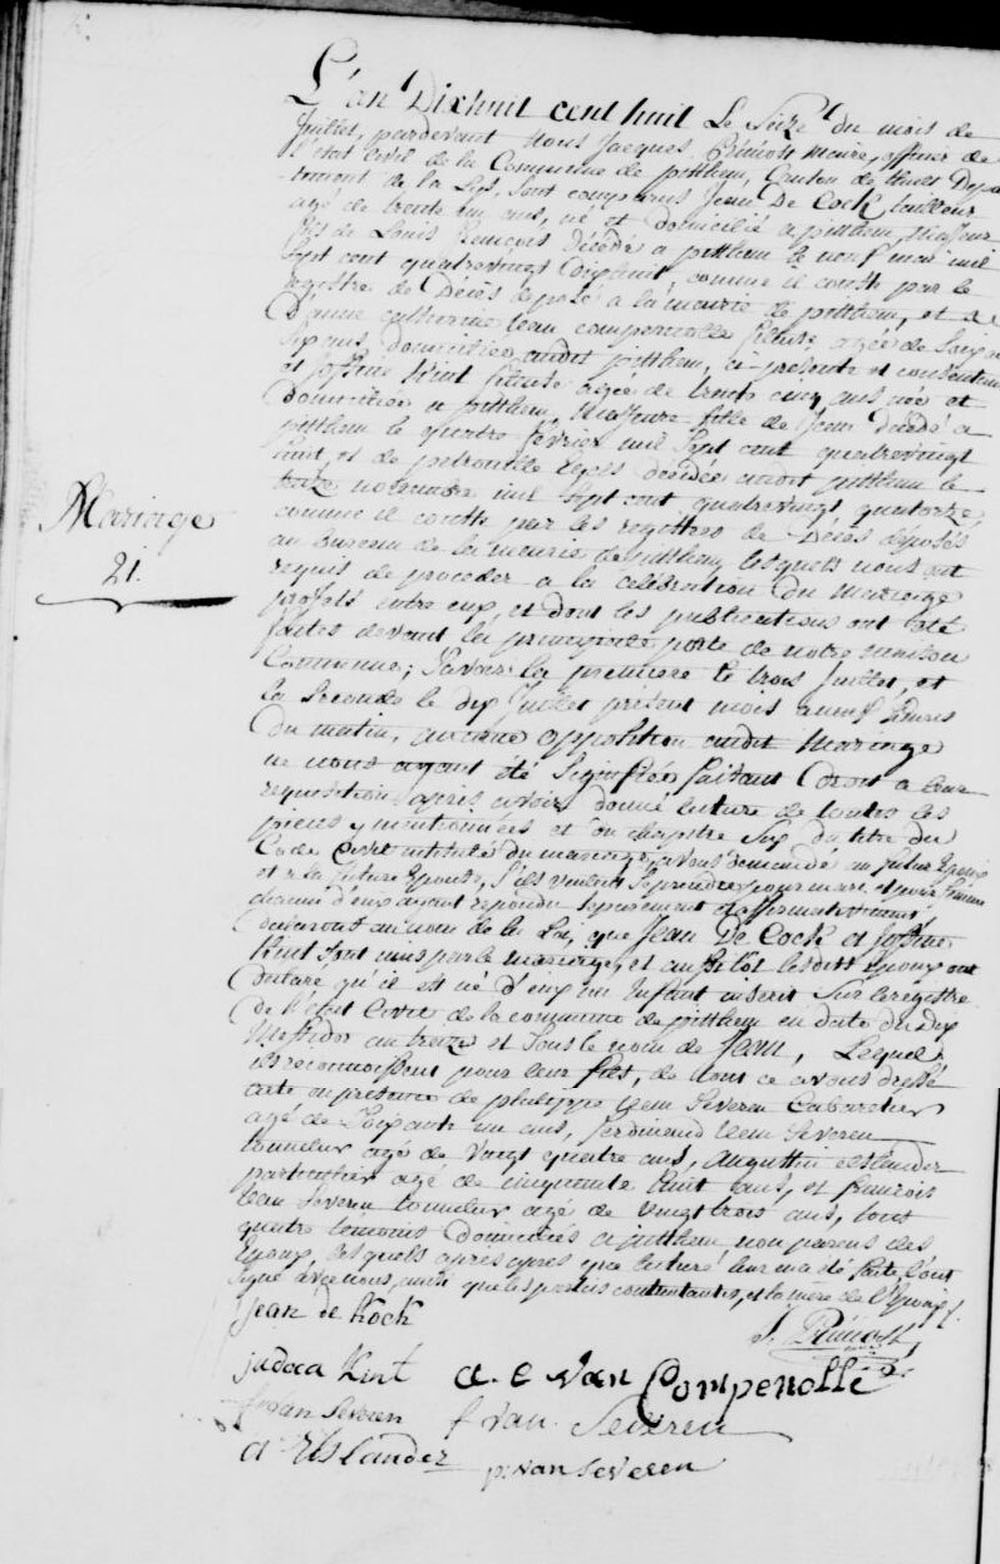 L'an Dixhuit cent huit Le Seize du mois de
Juillet, pardevant Nous Jacques Prinost maire, officier de
l'état civil de la Commune de pitthem, Canton de thielt Depar
-tement de la Lys, sont comparus Jean De Cock tailleur
agé de trente un ans, né et domicilié a pitthem, majeur
fils de Louis françois décédé a pitthem le neuf mai mil
sept cent quatrevingt dixhuit, comme il conste par le
registre de Décès déposé à la mairie de pitthem, et de
D'anne catherine Van compernolle fileuse agée de Soixan
Six ans, domiciliée audit pitthem, ci-présente et consentante
et jossine Kint fileuse agée de trente cinq ans née et
domiciliée a pitthem, Majeure fille de Jean décédé a
pitthem le quatre février mil Sept cent quatrevingt
huit et de petronille décédée audit pitthem le
treize novembre mil Sept cent quatrevingt quatorze,
comme il conste par les registres de Décès déposés
au bureau de la mairie de pitthem, lesquels nous ont
requis de proceder a la célébration du Mariage
projeté entre eux, et dont les publications ont été
faites devant la principale porte de notre maison
Commune; Savoir la première le trois Juillet, et
la Seconde le dix Juillet présent mois a neuf heures
du matin, aucune opposition audit Mariage
ne nous ayant été Signifiée faisant droit a leur
requisition, après avoir donné lecture de toutes les
pièces y mentionnées et du chapitre Six du titre du
Code Civil intitulé du mariage, avons demandé au futur Epoux
et à la future Epouse, S'ils veulent Se prendre pour mari et pour femme
chacun d'eux ayant répondu Séparément et affirmativement,
déclarons au nom de la Loi, que Jean De Cock et Jossine
Kint Sont unis par le mariage, et aussitôt lesdits Epoux ont
déclaré qu'il est né d'eux un Enfant inscrit Sur le registre
de l'état Civil de la commune de pitthem en date du Dix
Messidor an treize et Sous le nom de Jean, Lequel
ils reconnoissent pour leur fils, de tout ce avons dressé
acte en présence de philippe Van Severen Cabaretier
agé de Soixante un ans, ferdinand Van Severen
tonnelier agé de Vingt quatre ans, Augustin Eslander
particulier agé de cinquante huit ans, et françois
Van Severen tonnelier agé de vingt trois ans, tous
quatre témoins domiciliés a pitthem, non parens des
Epoux, lesquels après que lecture leur en a été faite, l'ont
Signé avec nous, ainsi que les parties contractantes, et la mère de l'Epoux.
jean de kock
J. Prinost
judoca Kint a. c van Compenolle
f van Severen f van Severen
a Eslander p: van severen
Mariage
21.